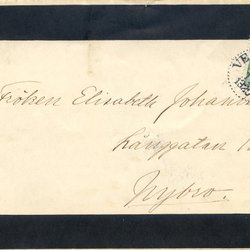 Fröken Elisabeth Johans
Långgatan 1
Nybro.
VE